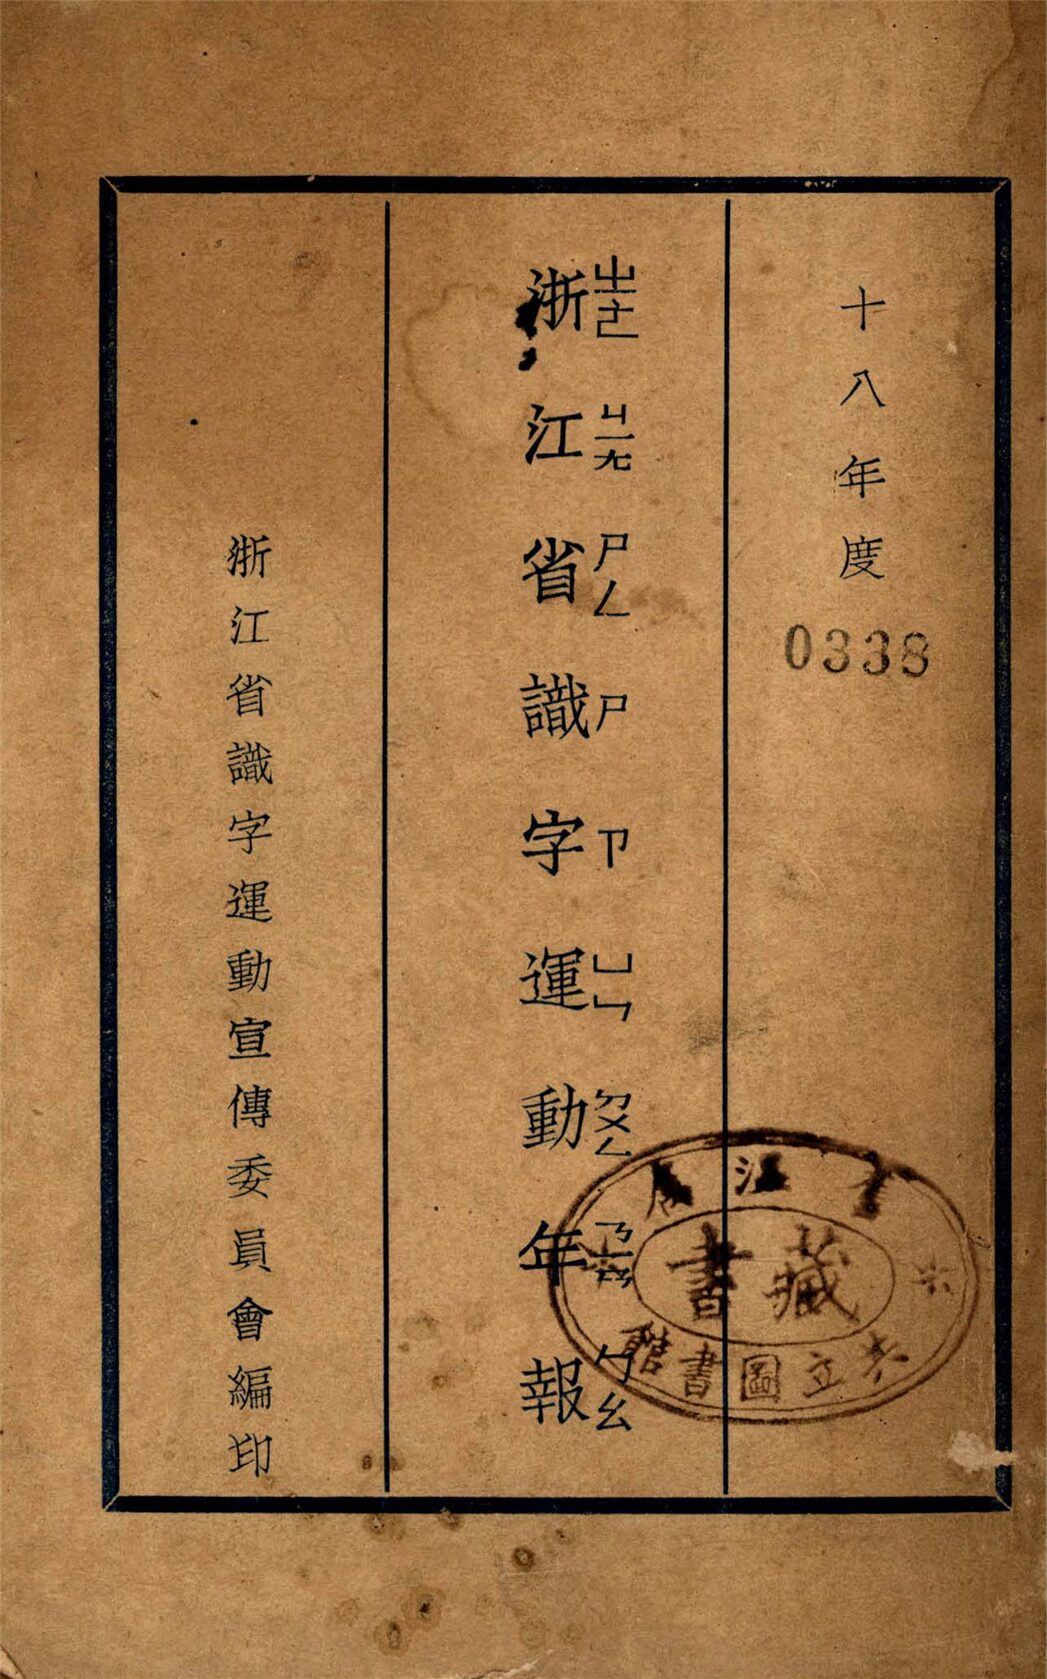 十八年度
0338
浙江省識字運動年報
ㄓㄜ ㄐㄧㄤ ㄕㄥ ㄕ ㄗ ㄩㄣ ㄉㄨㄥ ㄋㄧㄢ ㄅㄠ
浙江省識字運動宣傳委員會編印
江
藏書
立圖書館